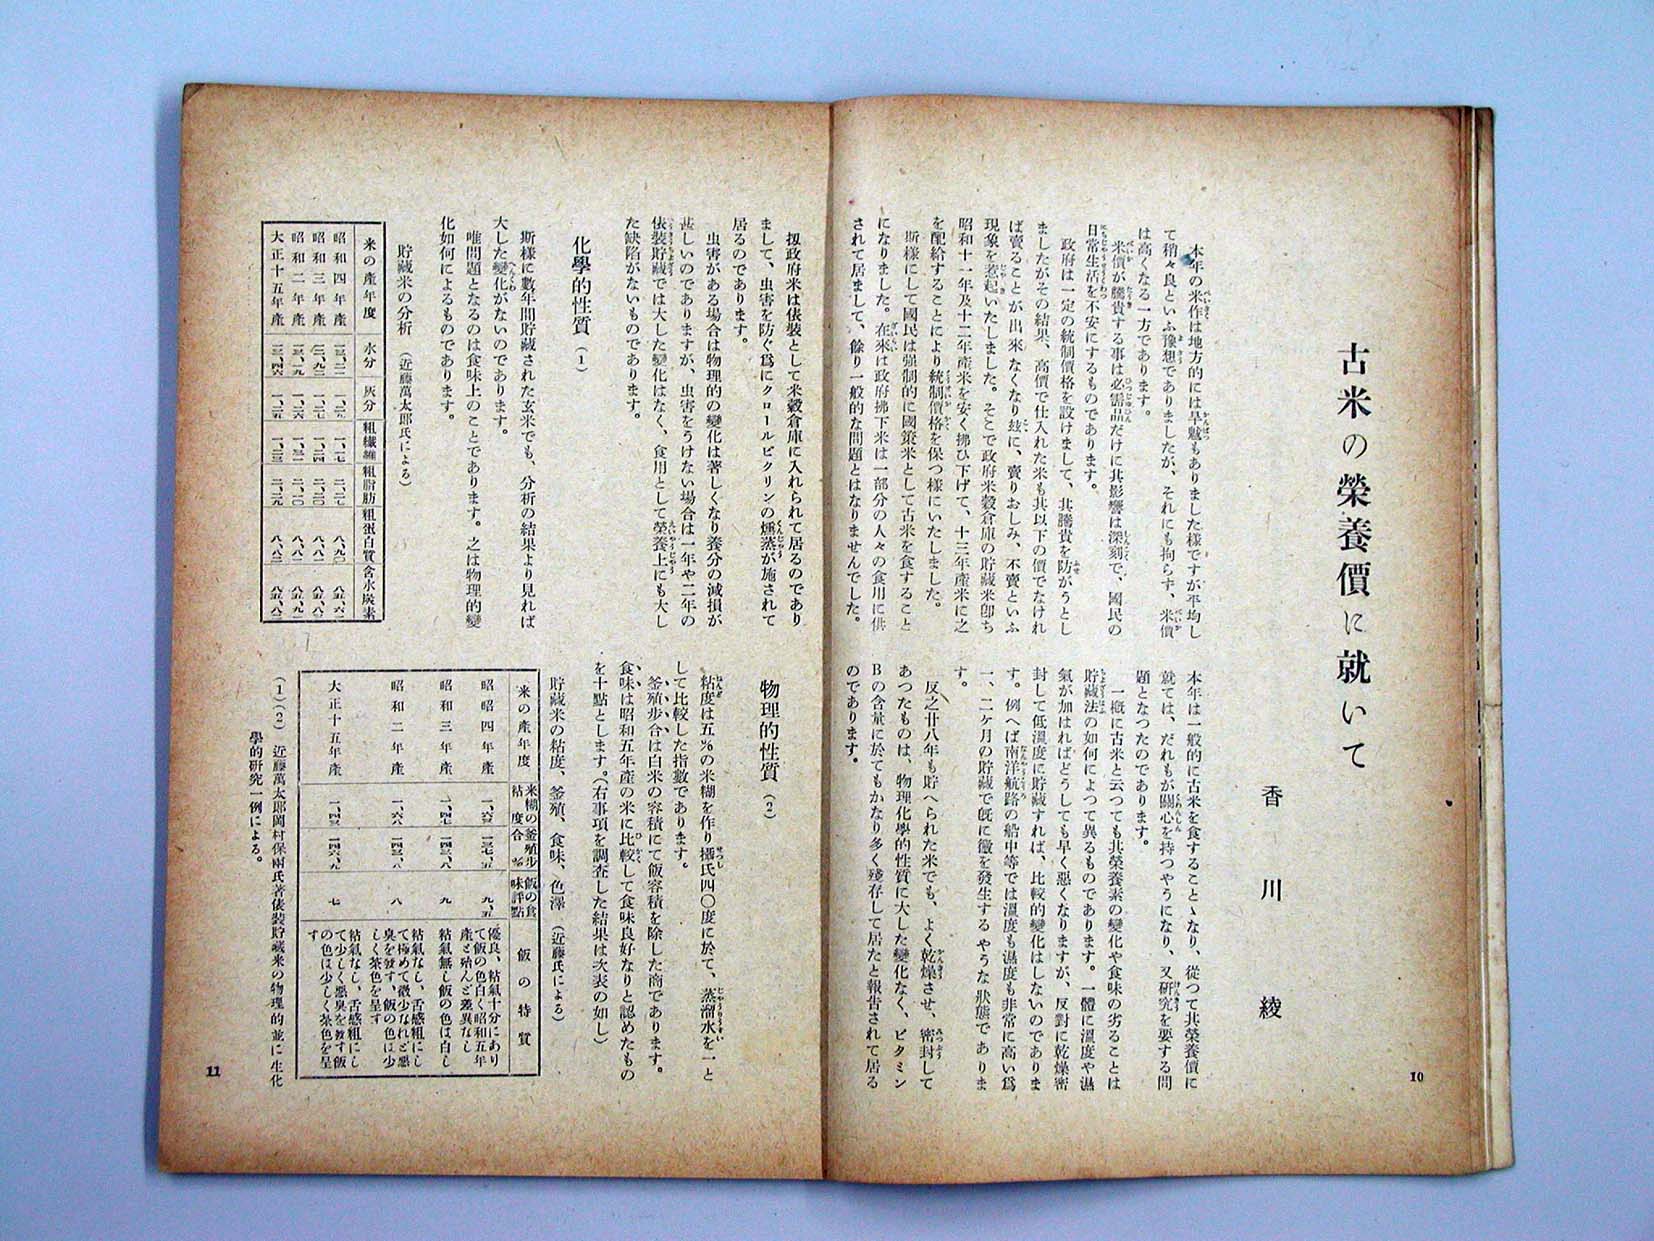 古米の榮養價に就いて
香川綾
本年の米作は地方的には旱魃もありました樣ですが平均し
て稍々良といふ豫想でありましたが、それにも拘らず、米價
は高くなる一方であります。
米價が騰貴する事は必需品だけに其影響は深刻で、國民の
日常生活を不安にするものであります。
政府は一定の統制價格を設けまして、其騰貴を防がうとし
ましたがその結果、高價で仕入れた米も其以下の價でなけれ
ば賣ることが出來なくなり玆に、賣りおしみ、不賣といふ
現象を惹起いたしました。そこで政府米穀倉庫の貯藏米卽ち
昭和十一年及十二年產米を安く拂ひ下げて、十三年產米に之
を配給することにより統制價格を保つ樣にいたしました。
斯樣にして國民は强制的に國策米として古米を食すること
になりました。在來は政府拂下米は一部分の人々の食用に供
されて居まして、餘り一般的な問題とはなりませんでした。
本年は一般的に古米を食することゝなり、從つて其榮養價に
就ては、だれもが關心を持つやうになり、又硏究を要する問
題となつたのであります。
一槪に古米と云つても其榮養素の變化や食味の劣ることは
貯藏法の如何によつて異るものであります。一體に溫度や濕
氣が加はればどうしても早く惡くなりますが、反對に乾燥密
封して低溫度に貯藏すれば、比較的變化はしないのでありま
す。例へば南洋航路の船中等では溫度も濕度も非常に高い爲
一、二ヶ月の貯藏で旣に黴を發生するやうな狀態でありま
す。
反之廿八年も貯へられた米でも、よく乾燥させ、密封して
あつたものは、物理化學的性質に大した變化なく、ビタミン
Bの含量に於てもかなり多く殘存して居たと報告されて居る
のであります。
10
扨政府米は俵裝として米穀倉庫に入れられて居るのであり
まして、虫害を防ぐ爲にクロールピクリンの燻蒸が施されて
居るのであります。
虫害がある場合は物理的の變化は著しくなり養分の減損が
甚しいのでありますが、虫害をうけない場合は一年や二年の
俵裝貯藏では大した變化はなく、食用として榮養上にも大し
た缺陷がないものであります。
化學的性質(1)
斯樣に數年間貯藏された玄米でも、分析の結果より見れば
大した變化がないのであります。
唯問題となるのは食味上のことであります。之は物理的變
化如何によるものであります。
貯藏米の分析(近藤萬太郞氏による)
米の產年度 水分 灰分 粗纖維 粗脂肪 粗蛋白質 含水炭素
昭和四年產
昭和三年產
昭和二年產
大正十五年產
物理的性質(2)
粘度は五%の米糊を作り攝氏四〇度に於て、蒸溜水を一と
して比較した指數であります。
釜殖步合は白米の容積にて飯容積を除した商であります。
食味は昭和五年產の米に比較して食味良好なりと認めたもの
を十點とします。(右事項を調査した結果は次表の如し)
貯藏米の粘度、釜殖、食味、色澤(近藤氏による)
米の產年度 米糊の粘度 釜殖步合% 飯の食味評點 飯の特質
昭和四年產 九、五 優良、粘氣十分にあり
て飯の色白く昭和五年
產と殆んど差異なし
昭和三年產 九 粘氣無し飯の色は白し
昭和二年產 八 粘氣なし、舌感粗にし
て極めて微少なれど惡
臭を發す、飯の色は少
しく茶色を呈す
大正十五年產 七 粘氣なし、舌感粗にし
て少しく惡臭を發す飯
の色は少しく茶色を呈
す
(1)(2) 近藤萬太郞岡村保兩氏著俵裝貯藏米の物理的並に生化
學的硏究一例による。
11